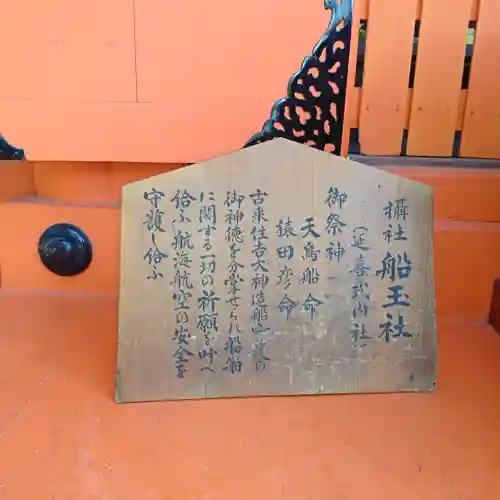 攝社 船玉社
(延喜式内社)
御祭神
天鳥船命
猿田彦命
古来住吉大神造船
御神徳を分掌せられ船舶
に関する一切の祈願を叶へ
給ふ航海航空の安全を
守護し給ふ